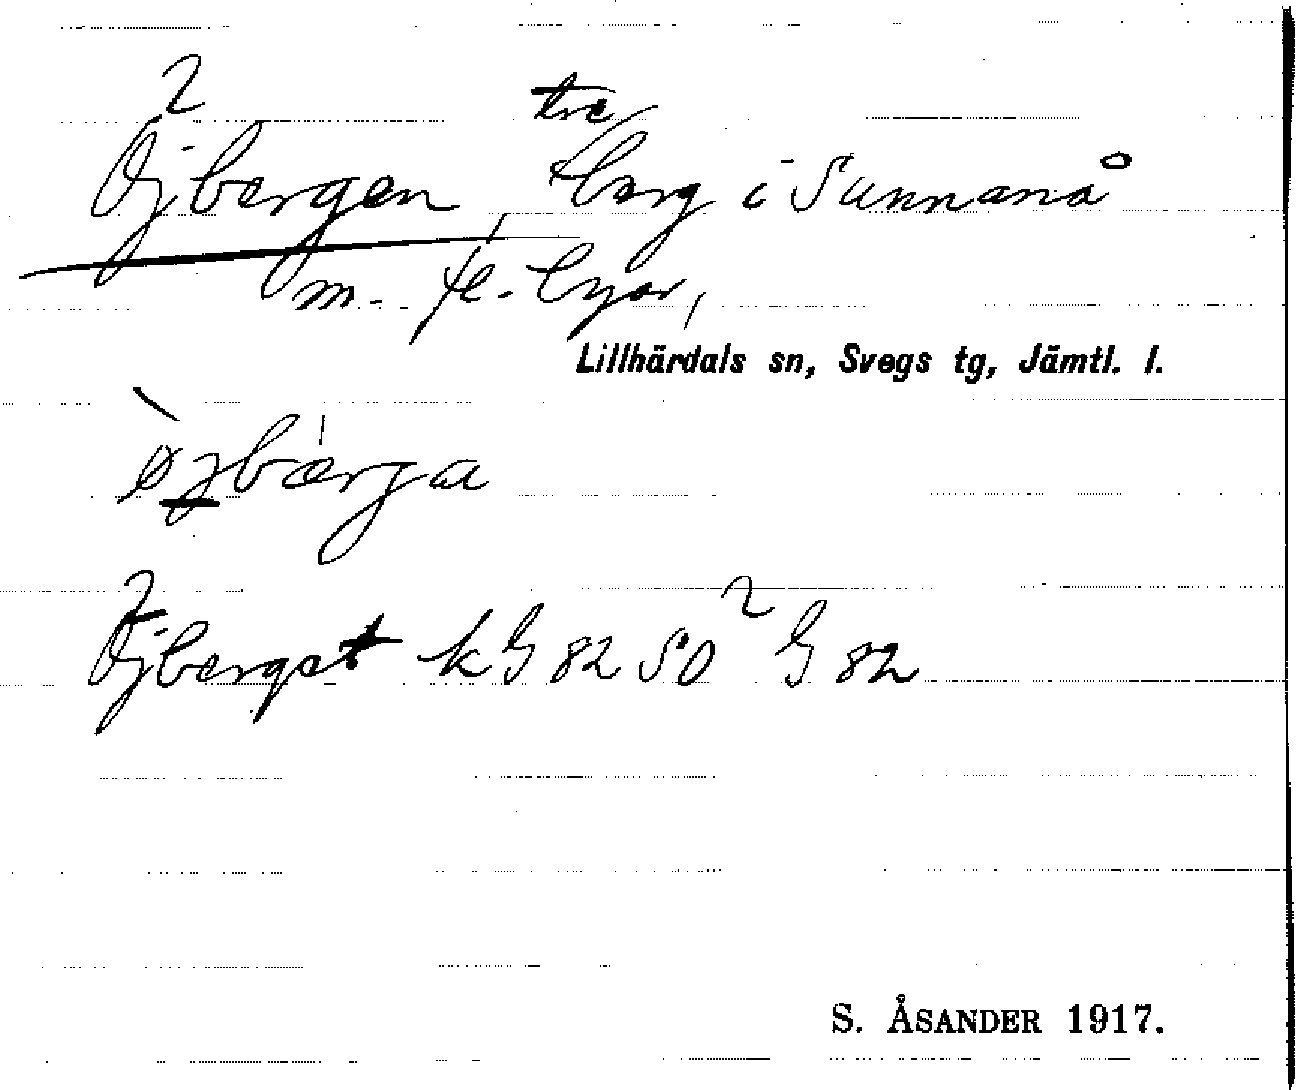 Öjbergen, tre berg i Sunnanå
m. fl. byar,
Lillhärdals sn, Svegs tg, Jämtl. l.
øjbærga
Öjberget kG 82 SO G 82
S. ÅSANDER 1917.